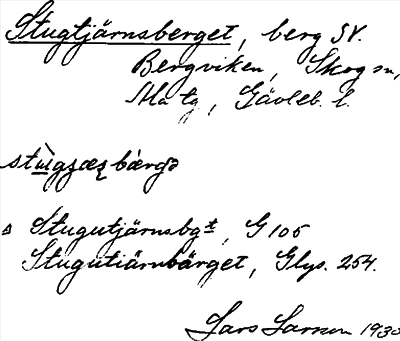 Stugtjärnsberget, berg SV.
Bergviken, Skog sn,
Ma tg, Gävleb. l.
Stugutjärnsbgt, G 105
Stugutiärnbärget, Glys. 254.
Lars Larsson 1930